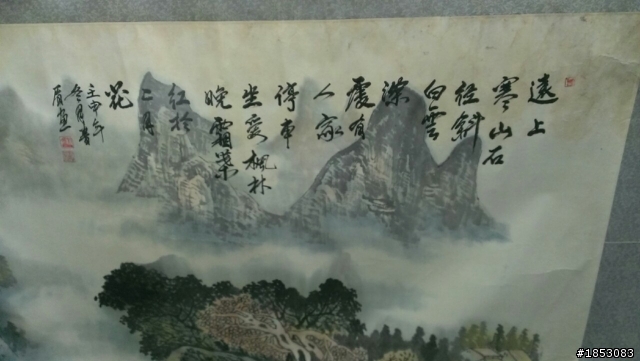 遠上
寒山石
径斜
白雲
深
處有
人家
停車
坐愛楓林
晚霜葉
紅於
二月
花
壬申年
冬月書
#1853083